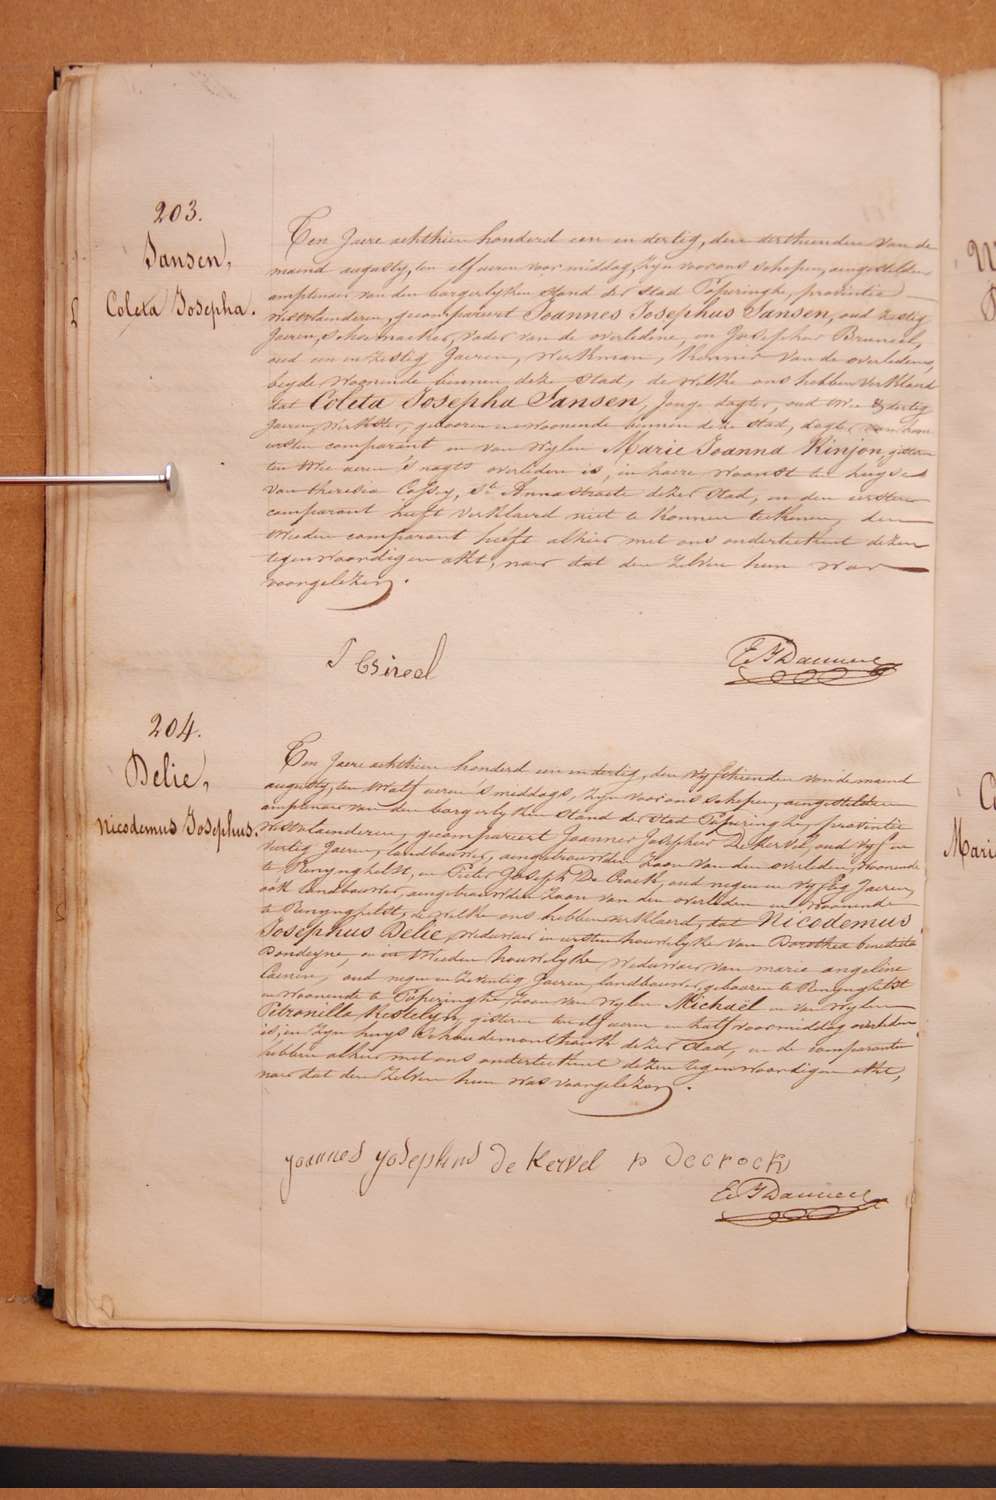 203.
Jansen,
Coleta Josepha.
Ten Jaere achthien honderd een en dertig, den derthienden van de
maend augusty, ten elf ueren voor middag, zyn voor ons schepen, aengestelden
amptenaer van den borgerlyken stand der stad Poperinghe, provintie
Westvlaenderen, gecompareert Joannes Josephus Jansen, oud zestig
Jaeren, schoenmaeker, vader van de overledene, en Josephus
oud een en zestig Jaeren, werkman, kennis van de overledene,
beyde woonende binnen deze stad, de welke ons hebben verklaerd
dat Coleta Josepha Jansen, Jonge dogter, oud twee & dertig
Jaeren, werkster, gebooren en woonende binnen deze stad, dogter van den
eersten comparant en van wylen Marie Joanna Kinjon, gisteren
ten twee ueren 's nagts overleden is, in haere woonst ten huyse
van theresia, St. Annastraete dezer stad, en den eersten
comparant heeft verklaerd niet te konnen teekenen, den
tweeden comparant heeft alhier met ons onderteekent dezen
tegenwoordigen akt, naer dat den zelven hun was
voorgelezen.
204.
Delie,
Nicodemus Josephus.
Ten Jaere achthien honderd een en dertig, den vyfthienden van de maend
augusty, ten twalf ueren 's middags, zyn voor ons schepen, aengestelden
amptenaer van den borgerlyken stand der stad Poperinghe, provintie
Westvlaenderen, gecompareert Joannes Josephus De Kervel, oud vyf en
veertig Jaeren, landbouwer, aengetrouwden zoon van den overleden, woonende
te Renynghelst, en Pieter Joseph De Crock, oud negen en vyftig Jaeren,
ook landbouwer, aengetrouwden zoon van den overleden en woonende
te Renynghelst, de welke ons hebben verklaerd, dat Nicodemus
Josephus Delie, weduwaer in eersten houwelyke van Dorothea benedicta
Dondeyne, en in tweeden houwelyke weduwaer van marie angeline
Caenen, oud negen en zeventig Jaeren, landbouwer, gebooren te Renynghelst
en woonende te Poperinghe, zoon van wylen Michaël en van wylen
Petronilla Kestelyn, gisteren ten elf ueren en half voormiddag overleden
is, in zyn huys dezer stad, en de comparanten
hebben alhier met ons onderteekent dezen tegenwoordigen akt,
naer dat den zelven hun was voorgelezen.
joannes josephus de Kervel p decrock